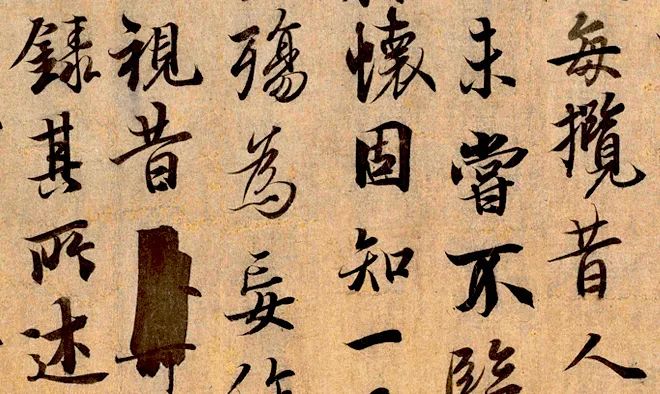 每攬昔人
未嘗不臨
懷固知一
殤為妄作
視昔
錄其所述